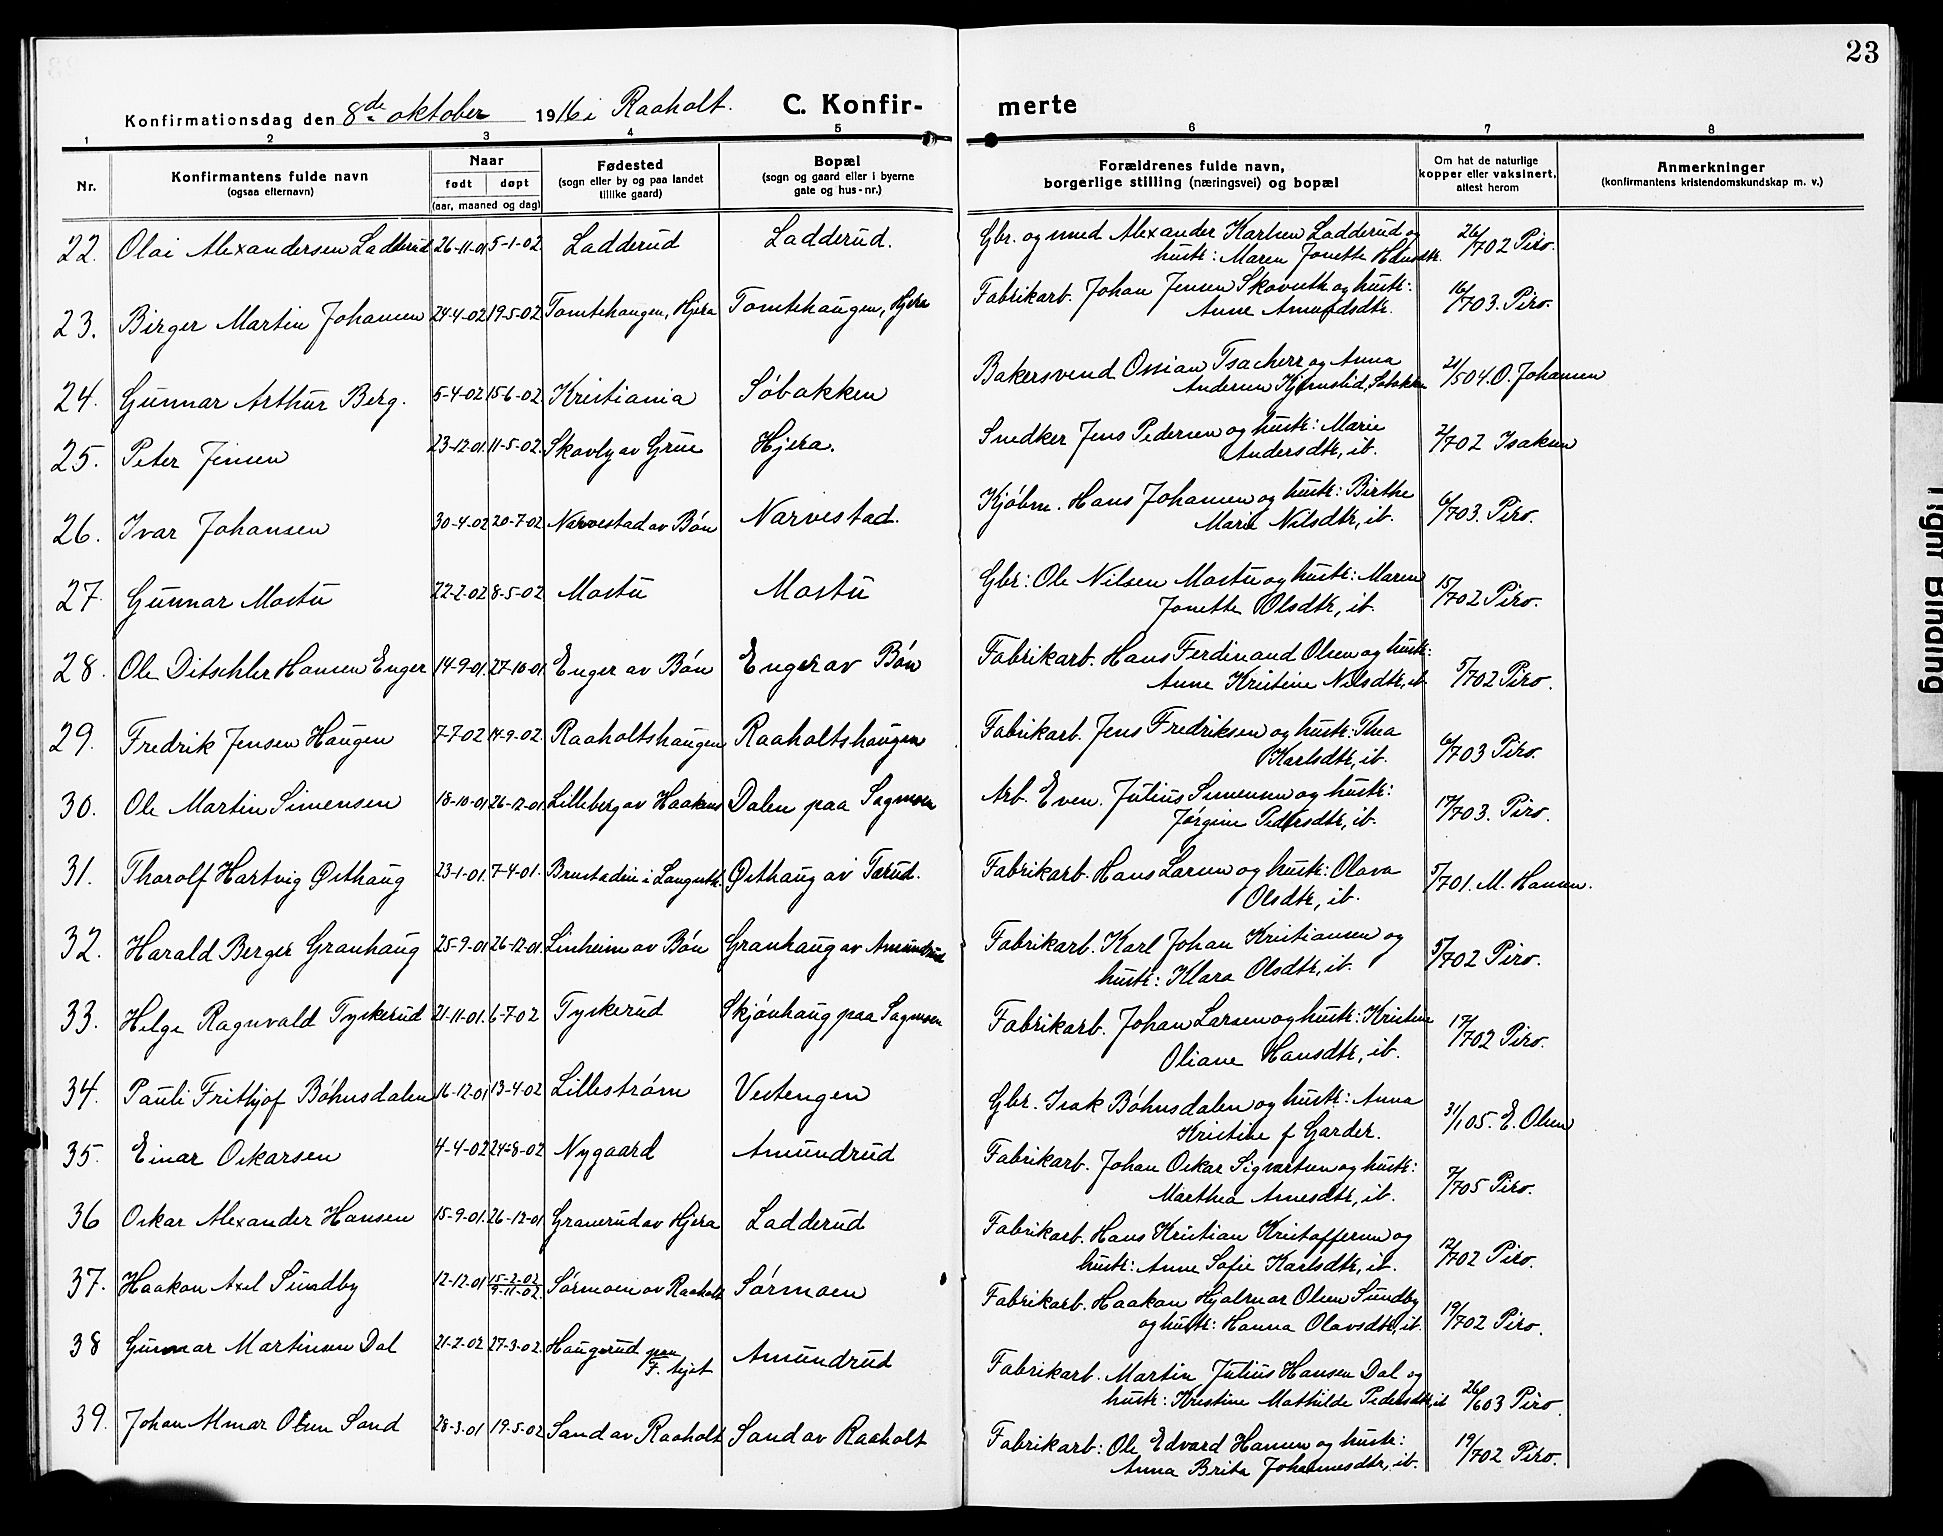 23
Konfirmationsdag den 8de oktober 1916 i Raaholt. C. Konfir- merte
1 2 3 4 5 6 7 8
Nr. Konfirmantens fulde navn (ogsaa efternavn) Naar født døpt (aar, maaned og dag) Fødested (sogn eller by og paa landet tillike gaard) Bopæl (sogn og gaard eller i byerne gate og hus-nr.) Forældrenes fulde navn, borgerlige stilling (næringsvei) og bopæl Om hat de naturlige kopper eller vaksinert, attest herom Anmerkninger (konfirmantens kristendomskundskap m. v.)
22. Olai Alexandersen Ladderud 26-11-01 5-1-02 Ladderud Ladderud. Gbr. og smed Alexander Karlsen Ladderud og 26/702 Piro.
hustr: Maren Jonette Hansdtr.
23. Birger Martin Johansen 24-4-02 19-5-02 Tomtehaugen, Hjera Tomtehaugen, Hjera Fabrikarb. Johan Jensen og hustr: 16/703. Piro.
Anne Amundsdtr.
24. Gunnar Arthur Berg. 5-4-02 15-6-02 Kristiania Søbakken Bakersvend Ossian og Anna 21/504. O. Johansen
Andersen
25. Peter Jensen 23-12-01 11-5-02 Skovly av Grue Hjera. Snedker Jens Pedersen og hustr: Marie 2/702 Isaksen
Andersdtr, ib.
26. Ivar Johansen 30-4-02 20-7-02 Narvestad av Bøn Narvestad. Kjøbm. Hans Johansen og hustr: Birthe 6/703. Piro.
Marie Nilsdtr, ib.
27 Gunnar Mostu 22-2-02 8-5-02 Mostu Mostu Gbr: Ole Nilsen Mostu og hustr: Maren 15/702 Piro.
Jonette Olsdtr, ib.
28. Ole Ditschler Hansen Enger 14-9-01 27-10-01 Enger av Bøn Enger av Bøn Fabrikarb. Hans Ferdinand Olsen og hustr: 5/702 Piro.
Anne Kristine Nilsdtr, ib.
29. Fredrik Jensen Haugen 7-7-02 14-9-02. Raaholtshaugen Raaholtshaugen Fabrikarb. Jens Fredriksen og hustr: Thea 6/703 Piro.
Karlsdtr, ib.
30. Ole Martin Simensen 18-10-01 26-12-01 Lilleberg av Haakens Dalen paa Sagmoen Arb. Even Julius Simensen og hustr: 17/703. Piro.
Jørgine Pedersdtr, ib.
31. Thorolf Hartvig Østhaug 23-1-01. 7-4-01. Brustadsin i Østhaug av Tærud. Fabrikarb. Hans Larsen og hustr: Olava 5/701. M. Hansen.
Olsdtr, ib.
32. Harald Berger Granhaug 25-9-01 26-12-01 Linheim av Bøn Granhaug av Amundrud Fabrikarb. Karl Johan Kristiansen og 5/702 Piro.
hustr: Klara Olsdtr, ib.
33. Helge Ragnvald Tyskerud 21-11-01. 6-7-02 Tyskerud Skjønhaug paa Sagmoen Fabrikarb. Johan Larsen og hustr: Kristine 17/702 Piro.
Oliane Hansdtr, ib.
34. Pauli Frithjof Bøhnsdalen 16-12-01 13-4-02 Lillestrøm Vestengen Gbr. Isak Bøhnsdalen og hustr: Anna 31/105. E. Olsen
Kristine f Garder.
35. Einar Oskarsen 4-4-02 24-8-02 Nygaard Amundrud Fabrikarb. Johan Oskar Sigvartsen og hustr: 7/705 Piro.
Marthea Arnesdtr, ib.
36 Oskar Alexander Hansen 15-9-01. 26-12-01 Granerud av Hjera Ladderud Fabrikarb. Hans Kristian Kristoffersen og 12/702 Piro.
hustr: Anne Sofie Karlsdtr, ib.
37. Haakon Axel Sundby 12-12-01 15-2-02 9-11-02. Sørmoen av Raaholt Sørmoen Fabrikarb. Haakon Hjalmar Olsen Sundby 19/702 Piro.
og hustr: Hanna Olavsdtr, ib.
38 Gunnar Martinsen Dal 21-2-02 27-3-02. Haugerud paa F. Amundrud Fabrikarb. Martin Julius Hansen Dal og
hustr: Kristine Mathilde Pedersdtr, ib 26/603 Piro.
39. Johan Almar Olsen Sand 28-3-01 19-5-02 Sand av Raaholt Sand av Raaholt Fabrikarb: Ole Edvard Hansen og hustr: 19/702 Piro.
Anna Brita Johannesdtr, ib.
Tight Binding